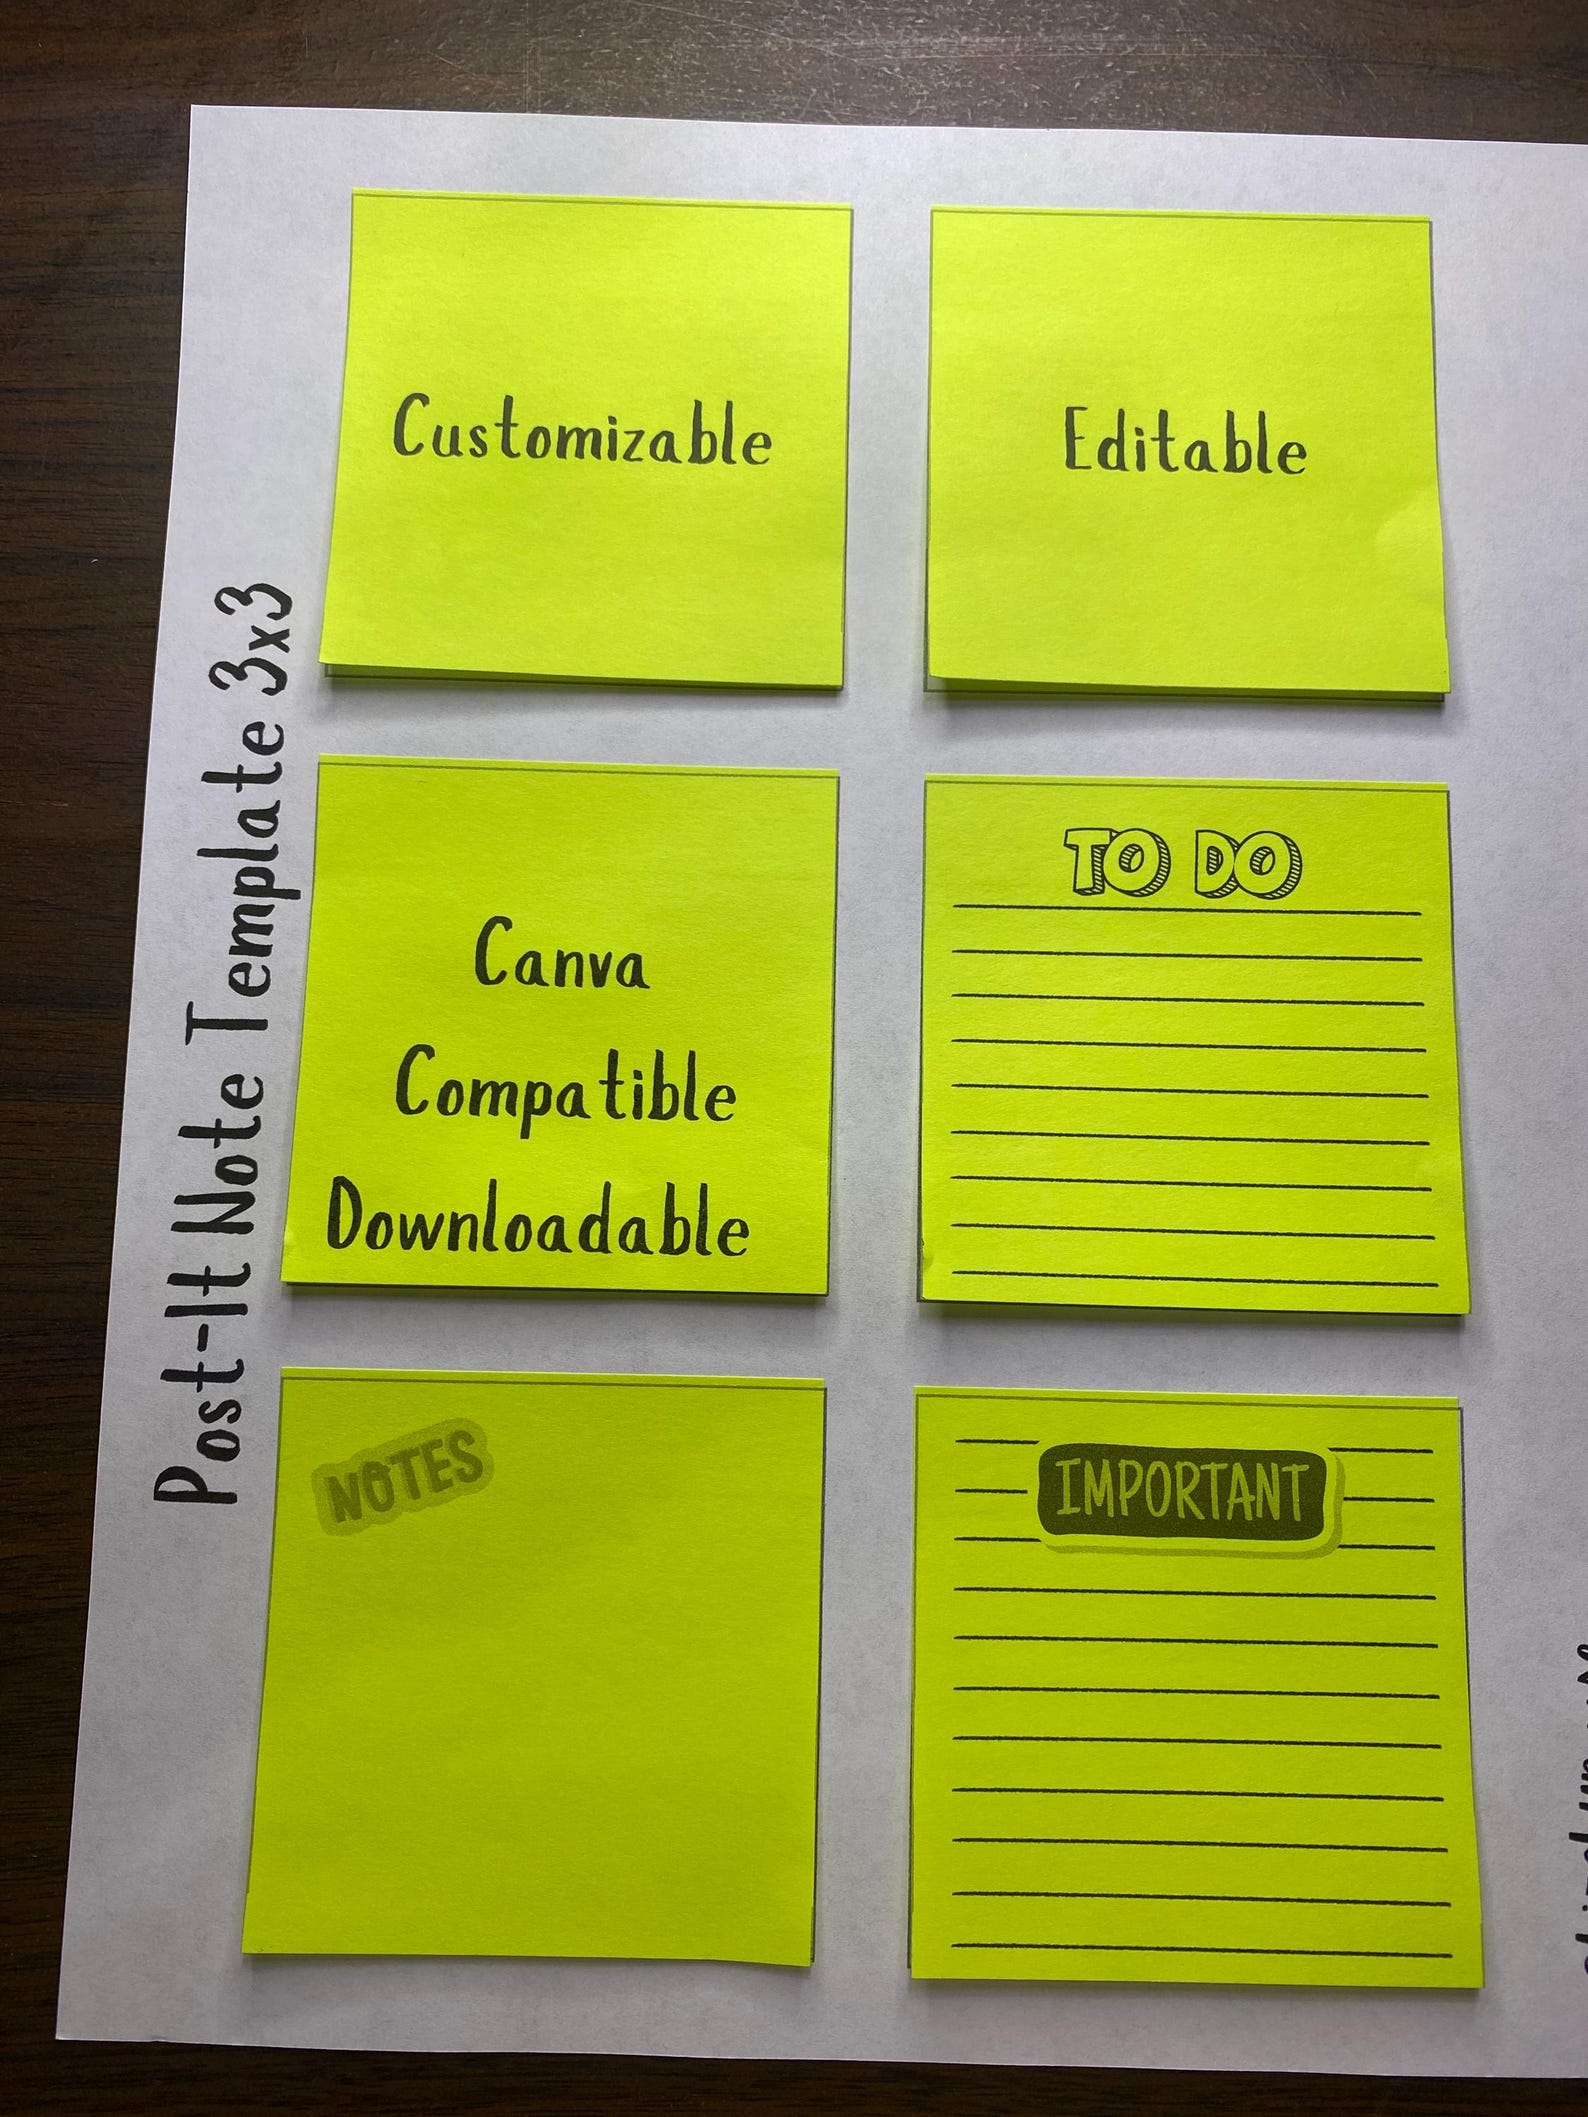 Post-It Note Template 3x3
Customizable
Editable
Canva
Compatible
Downloadable
TO DO
NOTES
IMPORTANT